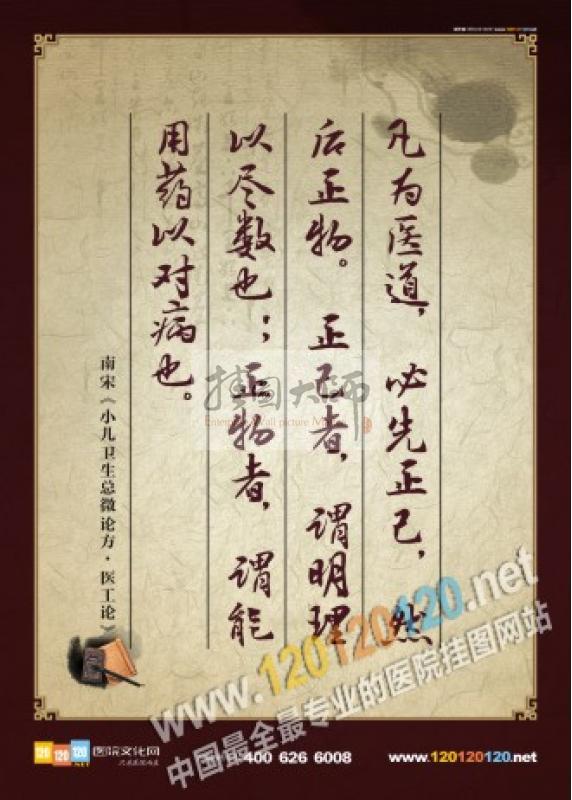 凡为医道,必先正己,然
后正物。正己者,谓明理
以尽数也;正物者,谓能
用药以对病也。
南宋《小儿卫生总微论方·医工论》
挂图大师
www.120120120.net
中国最全最专业的医院挂图网站
120 120 120
医院文化网
400 626 6008
www.120120120.net